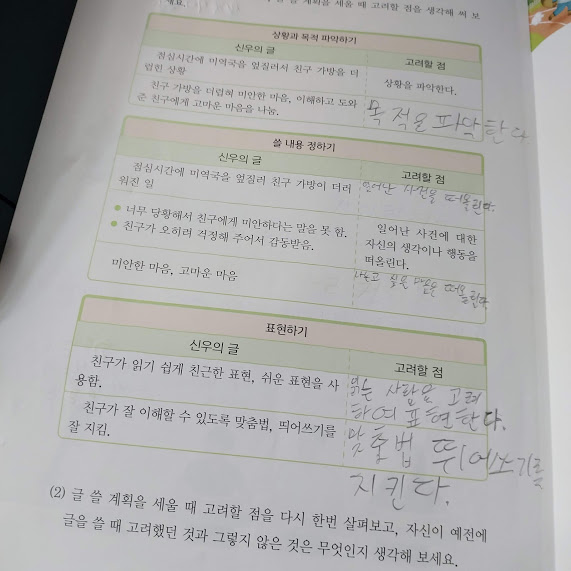 계획을 세울 때 고려할 점을 생각해 써 보
세요.
상황과 목적 파악하기
신우의 글
고려할 점
점심시간에 미역국을 엎질러서 친구 가방을 더
럽힌 상황
상황을 파악한다.
친구 가방을 더럽혀 미안한 마음, 이해하고 도와
준 친구에게 고마운 마음을 나눔.
목적을 파악한다
쓸 내용 정하기
신우의 글
고려할 점
점심시간에 미역국을 엎질러 친구 가방이 더러
워진 일
일어난 사건을 떠올린다.
● 너무 당황해서 친구에게 미안하다는 말을 못 함.
● 친구가 오히려 걱정해 주어서 감동받음.
일어난 사건에 대한
자신의 생각이나 행동을
떠올린다.
미안한 마음, 고마운 마음
나누고 싶은 마음을 떠올린다
표현하기
신우의 글
고려할 점
친구가 읽기 쉽게 친근한 표현, 쉬운 표현을 사
용함.
읽는 사람을 고려
하여 표현한다.
친구가 잘 이해할 수 있도록 맞춤법, 띄어쓰기를
잘 지킴.
맞춤법 뛰어쓰기를
지킨다.
(2) 글 쓸 계획을 세울 때 고려할 점을 다시 한번 살펴보고, 자신이 예전에
글을 쓸 때 고려했던 것과 그렇지 않은 것은 무엇인지 생각해 보세요.